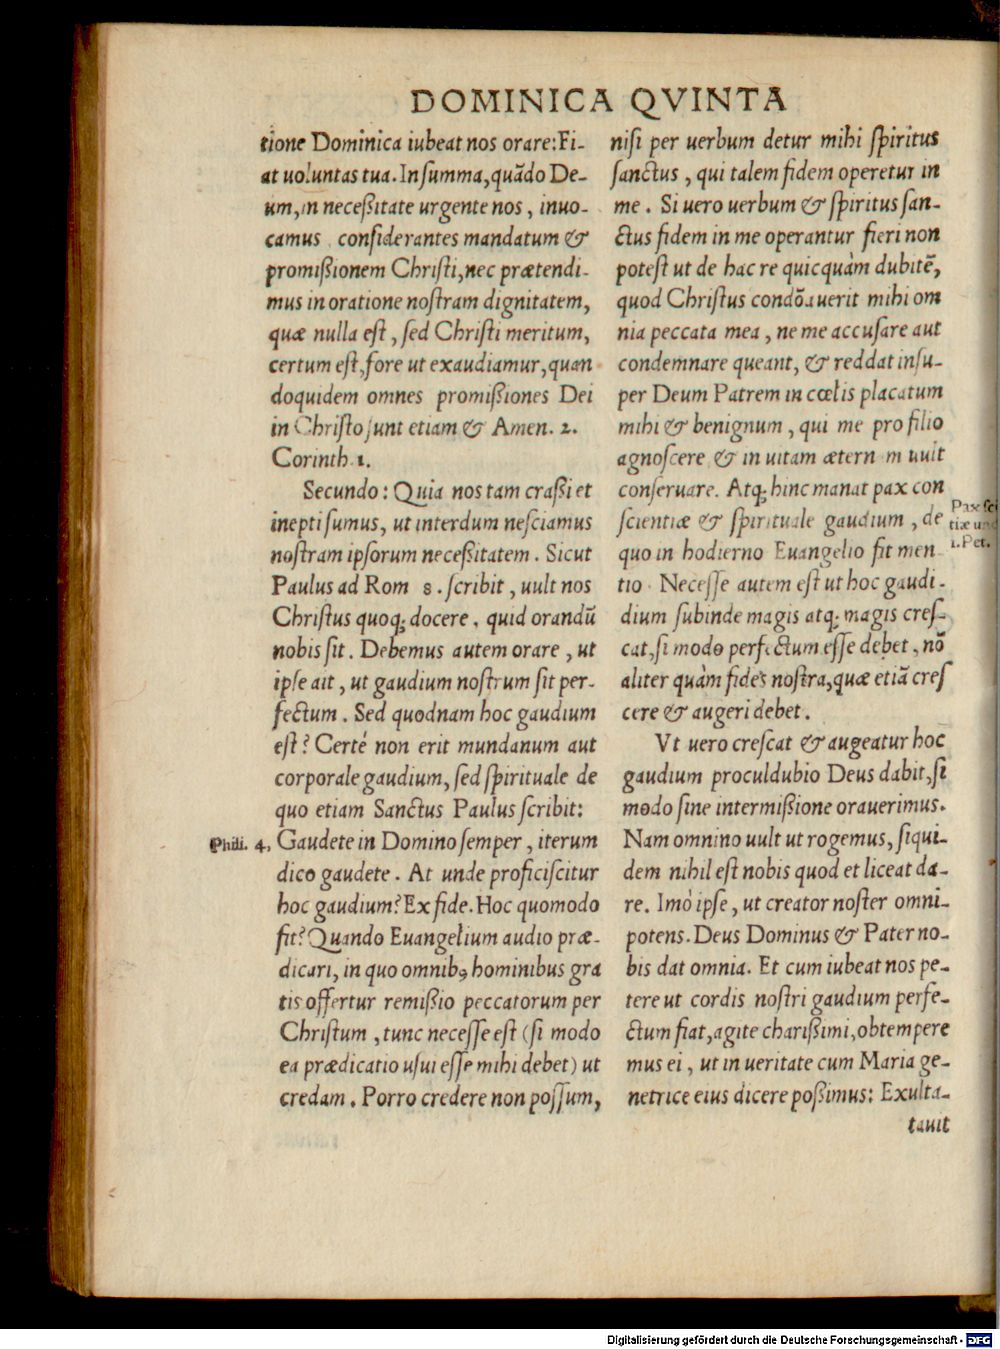 DOMINICA QVINTA
tione Dominica iubeat nos orare: Fi-
at uoluntas tua. In summa, quãdo De-
um, in neceßitate urgente nos, inuo-
camus considerantes mandatum &
promißionem Christi, nec prætendi-
mus in oratione nostram dignitatem,
quæ nulla est, sed Christi meritum,
certum est, fore ut exaudiamur, quan
doquidem omnes promißiones Dei
in Christo sunt etiam & Amen. 2.
Corinth. 1.
Secundo: Quia nos tam craßi et
inepti sumus, ut interdum nesciamus
nostram ipsorum neceßitatem. Sicut
Paulus ad Rom 8. scribit, uult nos
Christus quoq; docere, quid orandũ
nobis sit. Debemus autem orare, ut
ipse ait, ut gaudium nostrum sit per-
fectum. Sed quodnam hoc gaudium
est? Certé non erit mundanum aut
corporale gaudium, sed spirituale de
quo etiam Sanctus Paulus scribit:
Phili. 4. Gaudete in Domino semper, iterum
dico gaudete. At unde proficiscitur
hoc gaudium? Ex fide. Hoc quomodo
fit? Quando Euangelium audio præ-
dicari, in quo omnibꝰ hominibus gra
tis offertur remißio peccatorum per
Christum, tunc necesse est (si modo
ea prædicatio usui esse mihi debet) ut
credam. Porro credere non possum,
nisi per uerbum detur mihi spiritus
sanctus, qui talem fidem operetur in
me. Si uero uerbum & spiritus san-
ctus fidem in me operantur fieri non
potest ut de hac re quicquàm dubitẽ,
quod Christus condõauerit mihi om
nia peccata mea, ne me accusare aut
condemnare queant, & reddat insu-
per Deum Patrem in cœlis placatum
mihi & benignum, qui me pro filio
agnoscere & in uitam ætern m uuit
conseruare. Atq; hinc manat pax con
scientiæ & spirituale gaudium, de
quo in hodierno Euangelio fit men-
tio. Necesse autem est ut hoc gaudi-
dium subinde magis atq; magis cres-
cat, si modo perfectum esse debet, nõ
aliter quàm fides nostra, quæ etiã cres
cere & augeri debet.
Pax sci
tiæ und
1. Pet.
Vt uero crescat & augeatur hoc
gaudium proculdubio Deus dabit, si
modo sine intermißione orauerimus.
Nam omnino uult ut rogemus, siqui-
dem nihil est nobis quod et liceat da-
re. Imò ipse, ut creator noster omni-
potens. Deus Dominus & Pater no-
bis dat omnia. Et cum iubeat nos pe-
tere ut cordis nostri gaudium perfe-
ctum fiat, agite charißimi, obtempere
mus ei, ut in ueritate cum Maria ge-
netrice eius dicere poßimus: Exulta-
tauit
Digitalisierung gefördert durch die Deutsche Forschungsgemeinschaft - DFG